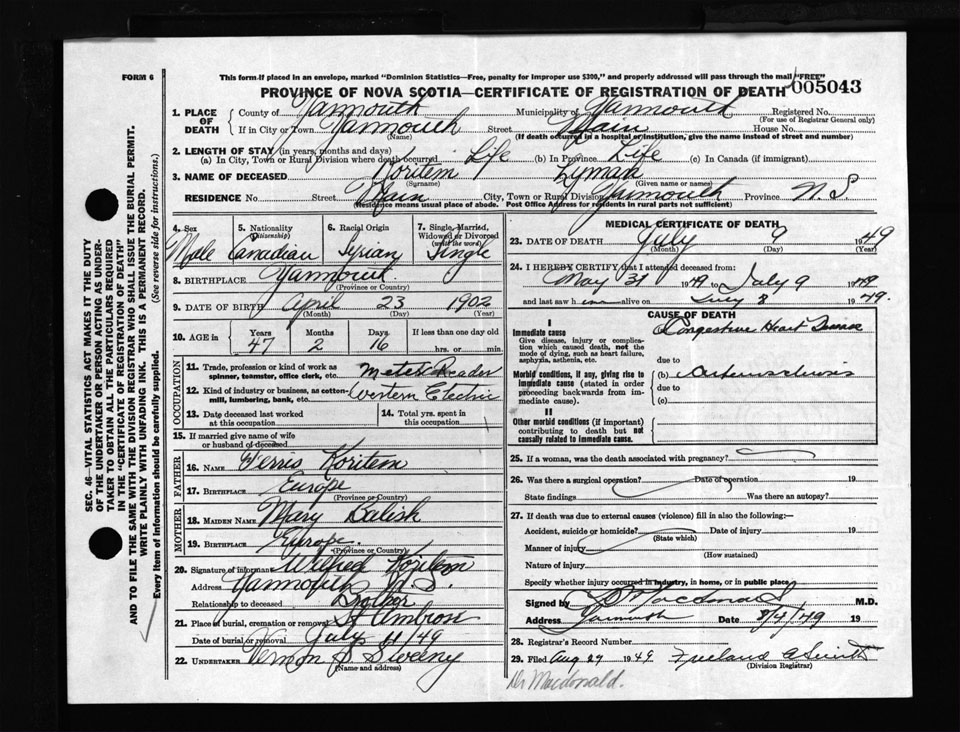 FORM 6
This form if placed in an envelope, marked "Dominion Statistics—Free, penalty for improper use $300," and properly addressed will pass through the mail "FREE"
PROVINCE OF NOVA SCOTIA—CERTIFICATE OF REGISTRATION OF DEATH 005043
1. PLACE OF DEATH County of Yarmouth Municipality of Yarmouth Registered No.
(For use of Registrar General only)
If in City or Town Yarmouth Street Main House No.
(Name) (If death occurred in a hospital or institution, give the name instead of street and number)
2. LENGTH OF STAY (in years, months and days)
(a) In City, Town or Rural Division where death occurred Life (b) In Province Life (c) In Canada (if immigrant)
3. NAME OF DECEASED Koritem Lyman
(Surname) (Given name or names)
RESIDENCE No. Street Main City, Town or Rural Division Yarmouth Province N.S
(Residence means usual place of abode. Post Office Address for residents in rural parts not sufficient)
4. Sex 5. Nationality (Citizenship) 6. Racial Origin 7. Single, Married, Widowed or Divorced (write the word)
Male Canadian Syrian Single
8. BIRTHPLACE Yarmouth
(Province or Country)
9. DATE OF BIRTH April 23 1902
(Month) (Day) (Year)
10. AGE in Years Months Days If less than one day old
47 2 16 hrs. or min.
OCCUPATION
11. Trade, profession or kind of work as spinner, teamster, office clerk, etc. Meter Reader
12. Kind of industry or business, as cotton-mill, lumbering, bank, etc. Western Electric
13. Date deceased last worked at this occupation
14. Total yrs. spent in this occupation
15. If married give name of wife or husband of deceased
FATHER
16. NAME Ferris Koritem
17. BIRTHPLACE Europe
(Province or Country)
MOTHER
18. MAIDEN NAME Mary Balish
19. BIRTHPLACE Europe.
(Province or Country)
20. Signature of informant Wilfred Koritem
Address Yarmouth N.S.
Relationship to deceased Brother
21. Place of burial, cremation or removal St Ambrose
Date of burial or removal July 11/49
22. UNDERTAKER Vernon J Sweeny
(Name and address)
MEDICAL CERTIFICATE OF DEATH
23. DATE OF DEATH July 9 1949
(Month) (Day) (Year)
24. I HEREBY CERTIFY that I attended deceased from:
May 31 1949 to July 9 1949
and last saw him alive on July 8 1949.
CAUSE OF DEATH
I
Immediate cause Congestive Heart Disease
Give disease, injury or complication which caused death, not the mode of dying, such as heart failure, asphyxia, asthenia, etc.
due to
Morbid conditions, if any, giving rise to immediate cause (stated in order proceeding backwards from immediate cause).
(b) Arteriosclerosis
due to
(c)
II
Other morbid conditions (if important) contributing to death but not causally related to immediate cause.
25. If a woman, was the death associated with pregnancy?
26. Was there a surgical operation? Date of operation 19
State findings Was there an autopsy?
27. If death was due to external causes (violence) fill in also the following:—
Accident, suicide or homicide? Date of injury 19
(State which)
Manner of injury
(How sustained)
Nature of injury
Specify whether injury occurred in industry, in home, or in public place
Signed by Macdonald M.D.
Address Yarmouth Date 8/4/49 19
28. Registrar's Record Number
29. Filed Aug 29 1949 Freeland A Smith
(Division Registrar)
Dr Macdonald.
SEC. 46—VITAL STATISTICS ACT MAKES IT THE DUTY
OF THE UNDERTAKER OR PERSON ACTING AS UNDER-
TAKER TO OBTAIN ALL THE PARTICULARS REQUIRED
IN THE "CERTIFICATE OF REGISTRATION OF DEATH"
AND TO FILE THE SAME WITH THE DIVISION REGISTRAR WHO SHALL ISSUE THE BURIAL PERMIT.
WRITE PLAINLY WITH UNFADING INK. THIS IS A PERMANENT RECORD.
Every item of Information should be carefully supplied. (See reverse side for instructions.)